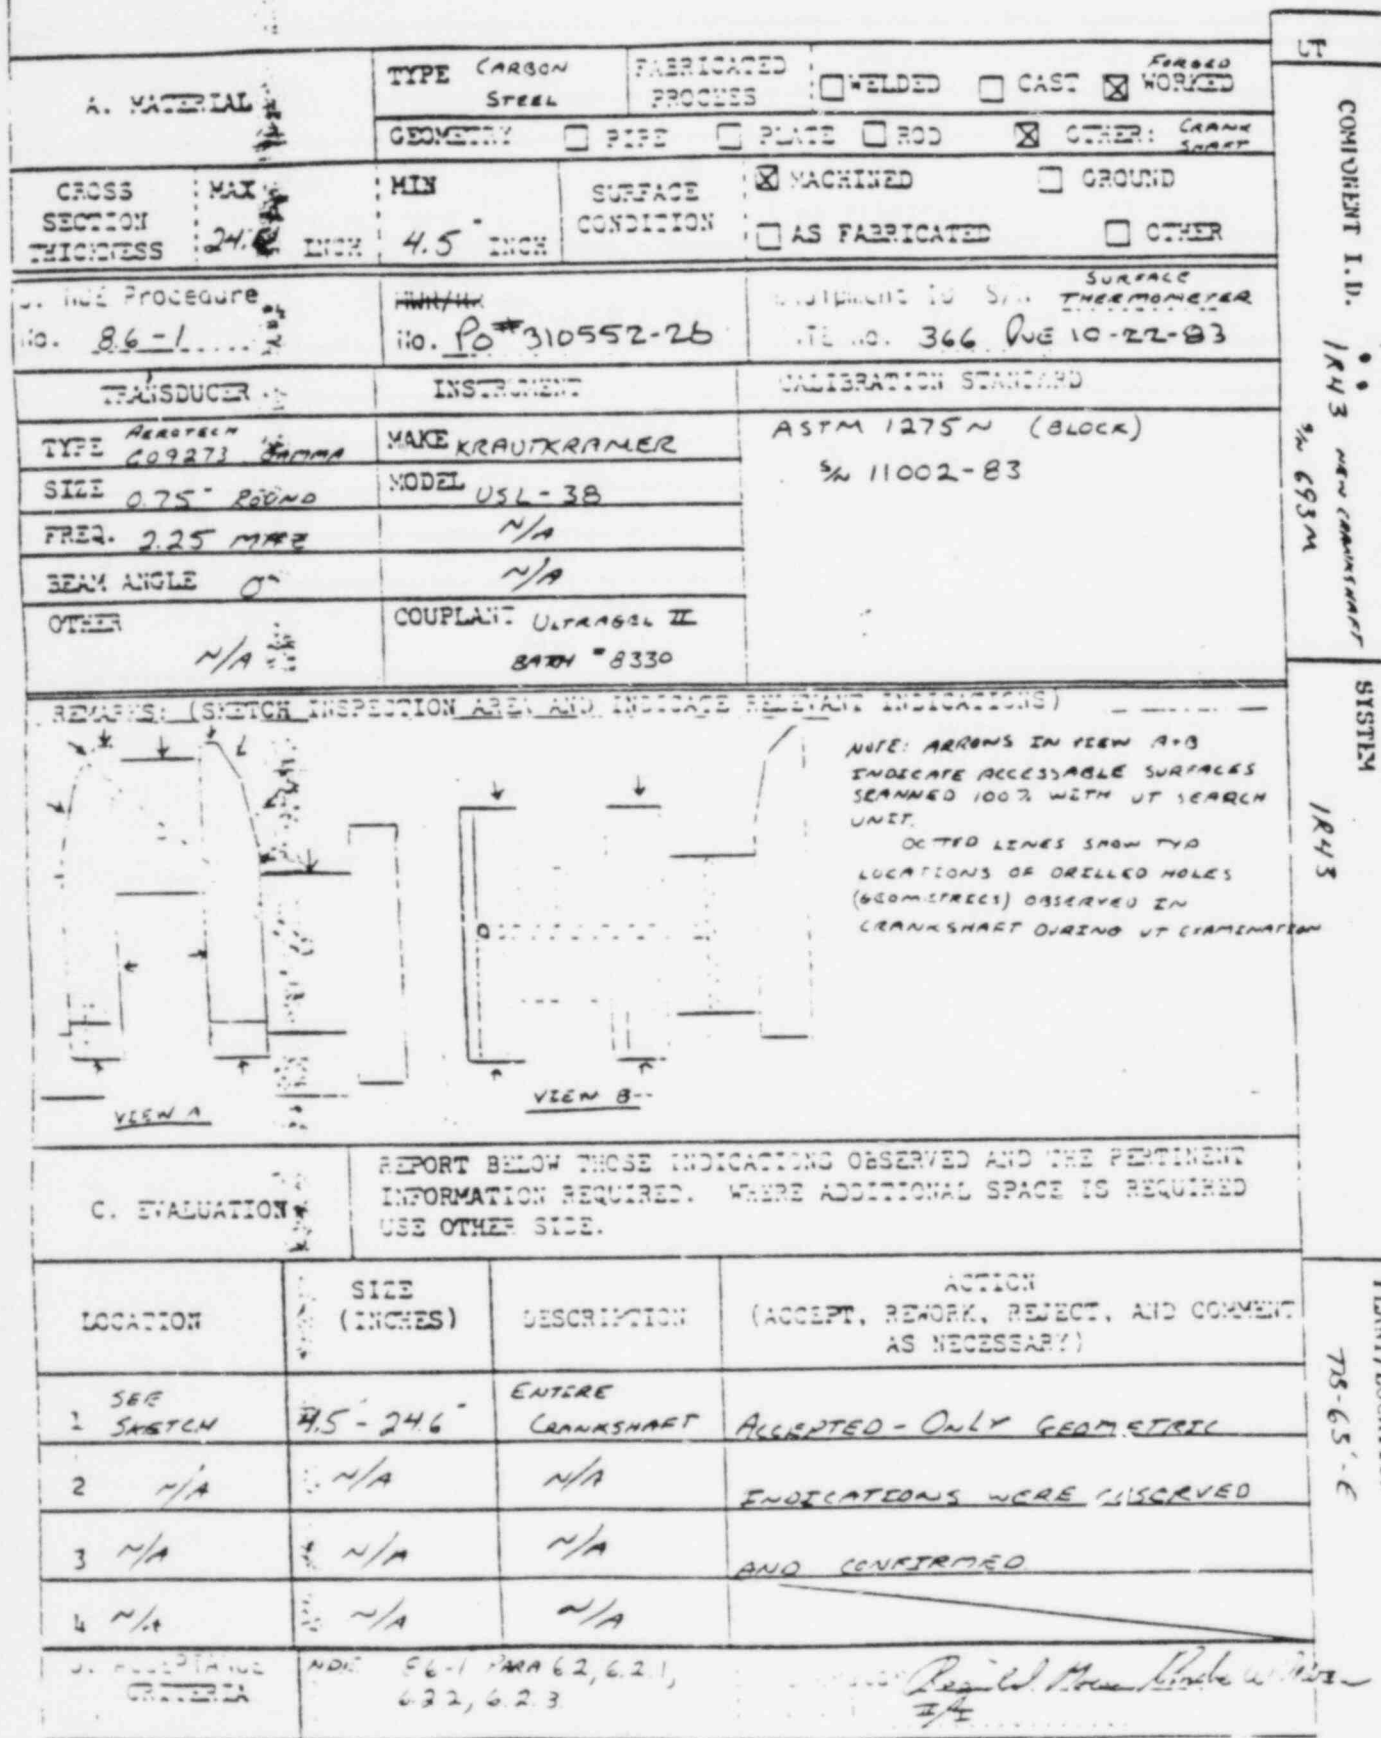 UT
A. MATERIAL
TYPE CARBON STEEL
FABRICATED PROCESS
☐ WELDED ☐ CAST ☒ FORGED WORKED
GEOMETRY ☐ PIPE ☐ PLATE ☐ ROD ☒ OTHER: CRANK SHAFT
CROSS SECTION THICKNESS
MAX INCH
MIN 4.5" INCH
SURFACE CONDITION
☒ MACHINED ☐ GROUND
☐ AS FABRICATED ☐ OTHER
NDE Procedure
No. 86-1
No. PO#310552-26
SURFACE THERMOMETER
366 DUE 10-22-83
TRANSDUCER
INSTRUMENT
CALIBRATION STANDARD
TYPE AEROTECH G09273 GAMMA
MAKE KRAUTKRAMER
ASTM 1275N (BLOCK)
SIZE 0.75" ROUND
MODEL USL-38
S/N 11002-83
FREQ. 2.25 MHZ
N/A
BEAM ANGLE 0°
N/A
OTHER N/A
COUPLANT ULTRAGEL II
BATCH #8330
REMARKS: (SKETCH INSPECTION AREA AND INDICATE RELEVANT INDICATIONS)
NOTE: ARROWS IN VIEW A+B
INDICATE ACCESSABLE SURFACES
SCANNED 100% WITH UT SEARCH
UNIT.
DOTTED LINES SHOW TYP
LOCATIONS OF DRILLED HOLES
(GEOMETRICS) OBSERVED IN
CRANKSHAFT DURING UT EXAMINATION
VIEW A
VIEW B
C. EVALUATION
REPORT BELOW THOSE INDICATIONS OBSERVED AND THE PERTINENT
INFORMATION REQUIRED. WHERE ADDITIONAL SPACE IS REQUIRED
USE OTHER SIDE.
LOCATION
SIZE (INCHES)
DESCRIPTION
ACTION
(ACCEPT, REWORK, REJECT, AND COMMENT
AS NECESSARY)
1 SEE SKETCH
4.5 - 24.6"
ENTIRE CRANKSHAFT
ACCEPTED - ONLY GEOMETRIC
2 N/A
N/A
N/A
INDICATIONS WERE OBSERVED
3 N/A
N/A
N/A
AND CONFIRMED
4 N/A
N/A
N/A
ACCEPTANCE CRITERIA
NDE 86-1 PARA 6.2, 6.2.1,
6.2.2, 6.2.3
COMPONENT I.D. 1R43 NEW CRANKSHAFT
S/N 693M
SYSTEM 1R43
TB-65'-E